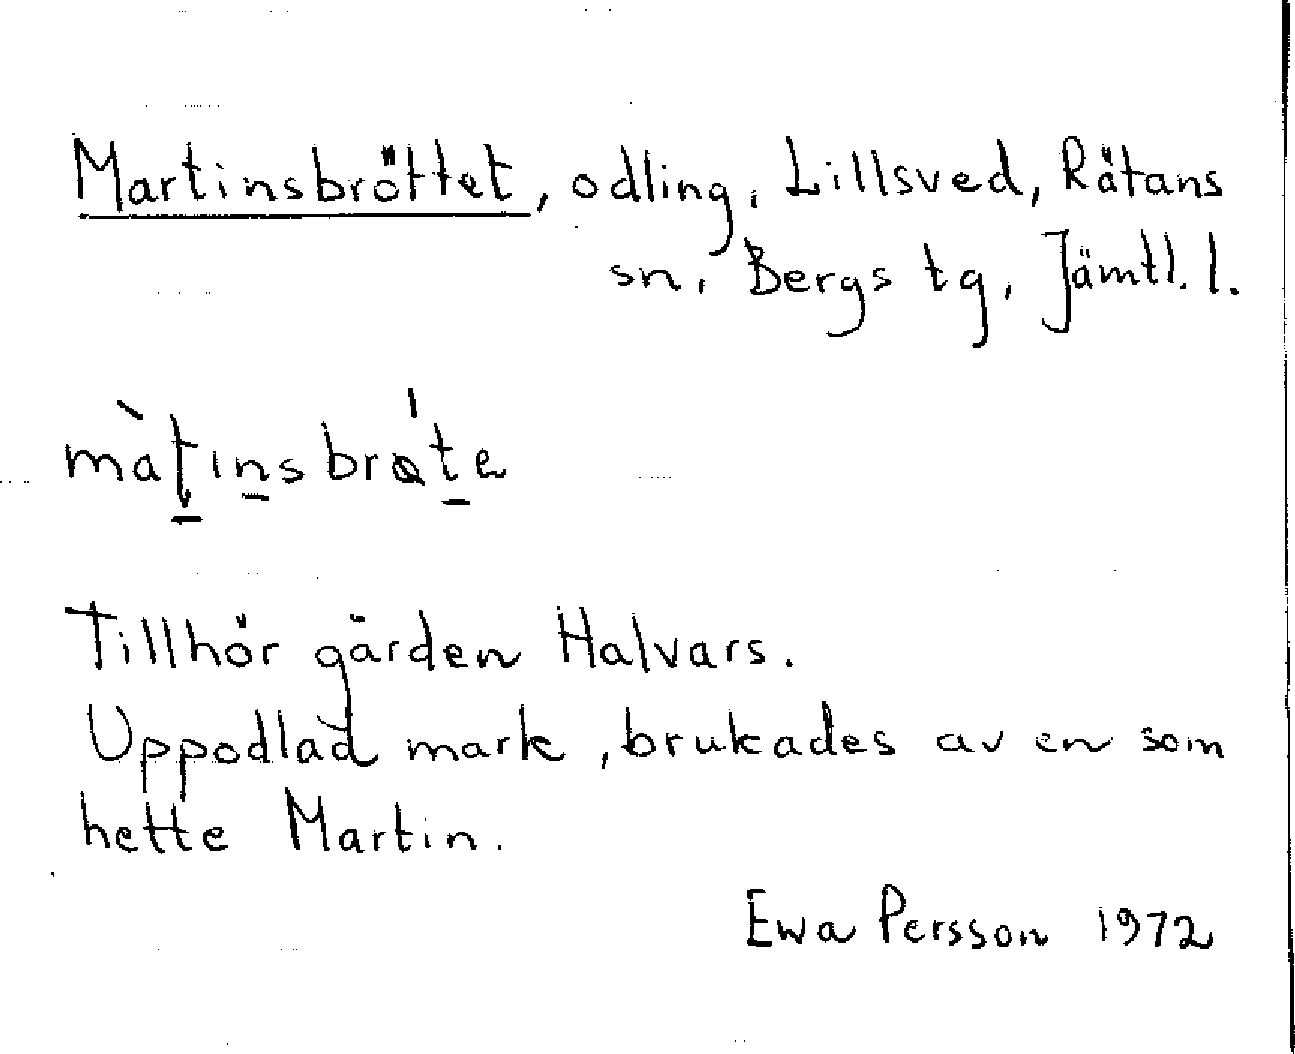 Martinsbröttet, odling, Lillsved, Rätans
sn, Bergs tg, Jämtl. l.
màtinsbrøte
Tillhör gården Halvars.
Uppodlad mark, brukades av en som
hette Martin.
Ewa Persson 1972